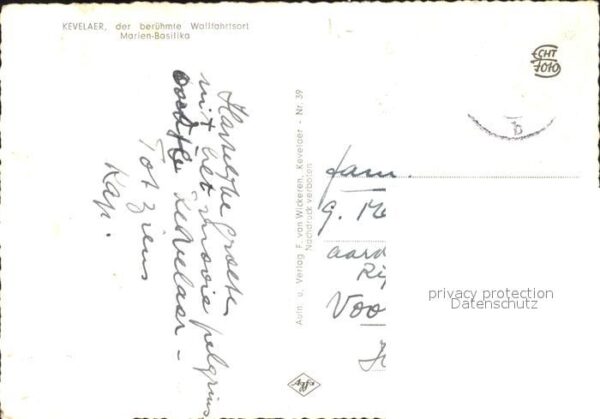 KEVELAER, der berühmte Wallfahrtsort
Marien-Basilika
ECHT
FOTO
Hartelijke groeten
uit het mooie pelgrims
oordje Kevelaer -
Tot ziens
Kap.
Aufn. u. Verlag F. van Wickeren, Kevelaer - Nr. 39
Nachdruck verboten
Fam.
G.
aard
Voo
privacy protection
Datenschutz
Agfa